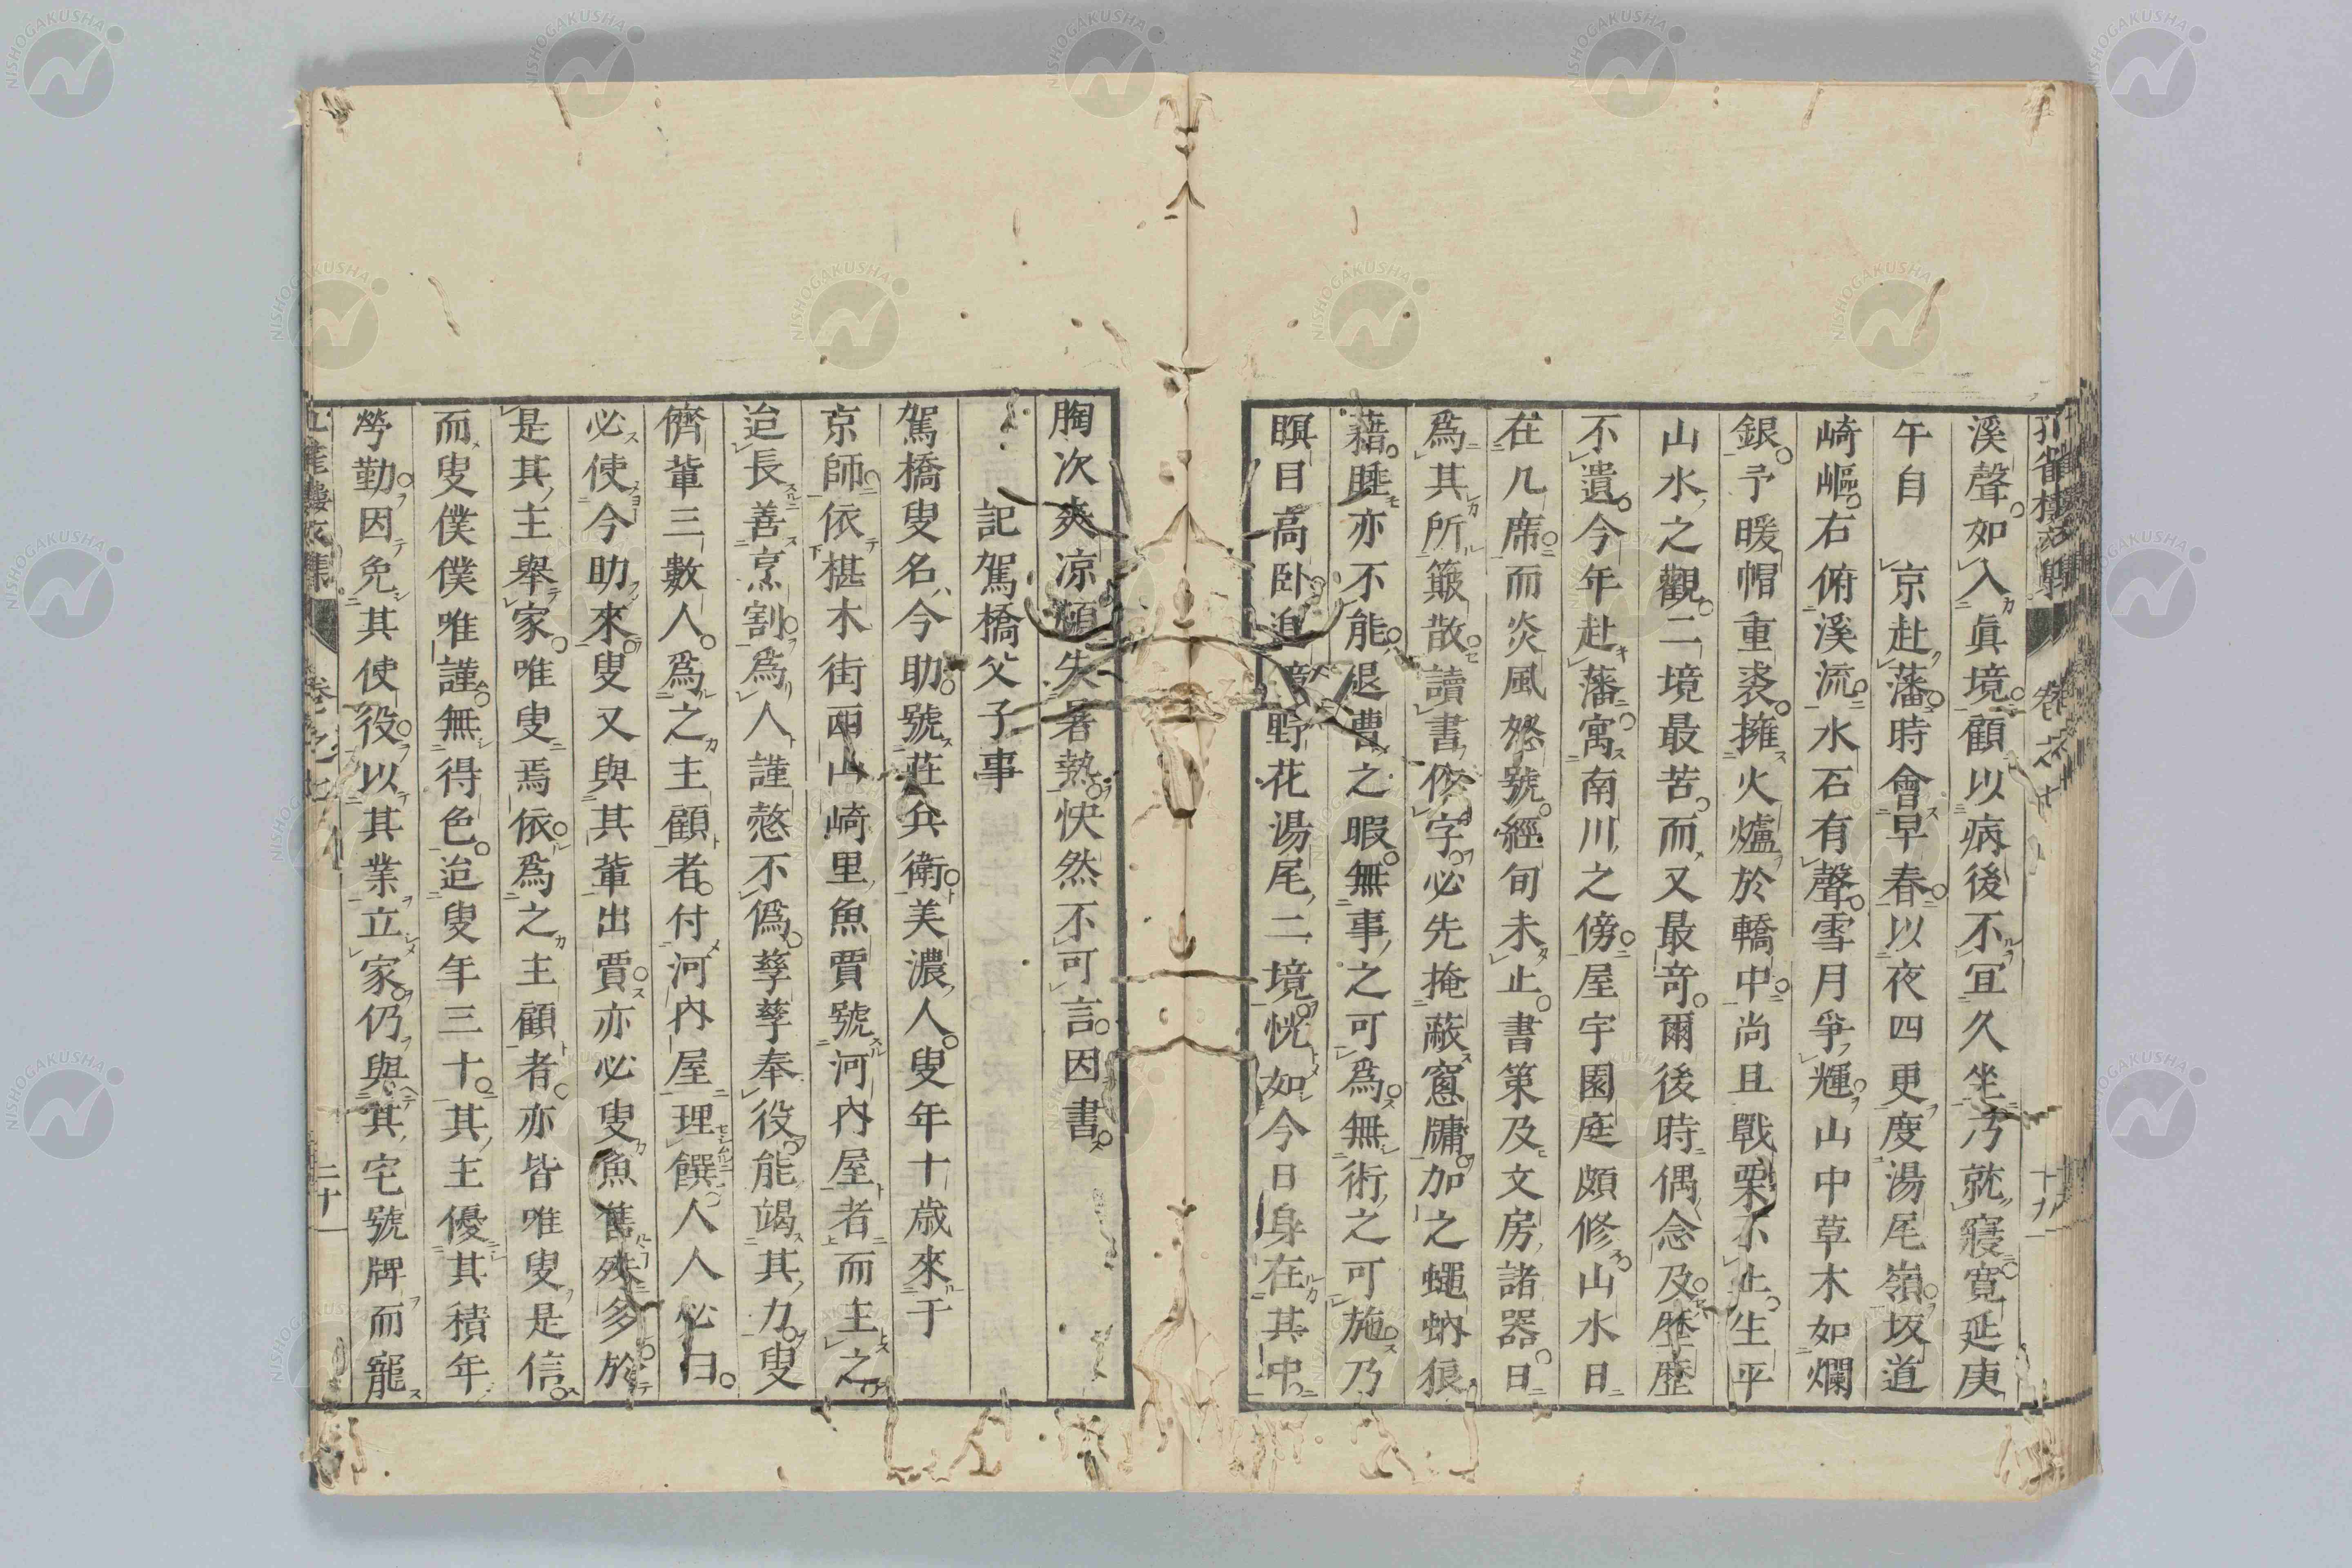 溪聲如入眞境顧以病後不宜久坐乃就寢寛延庚
午自　京赴藩時會早春以夜四更度湯尾嶺坂道
崎嶇右俯溪流水石有聲雪月爭輝山中草木如爛
銀予暖帽重裘擁火爐於轎中尚且戰栗不止生平
山水之觀二境最苦而又最奇爾後時偶念及歷歷
不遺今年赴藩寓南川之傍屋宇園庭頗修山水日
在几席而炎風怒號經旬未止書策及文房諸器日
爲其所簸散讀書作字必先掩蔽窻牖加之蠅蚋狼
藉睡亦不能退曹之暇無事之可爲無術之可施乃
瞑目高臥追野花湯尾二境恍如今日身在其中
胸次爽凉頓失暑熱快然不可言因書
記駕橋父子事
駕橋叟名今助號莊兵衛美濃人叟年十歲來于
京師依椹木街西山崎里魚賈號河內屋者而主之
迨長善烹割爲人謹愨不僞孳孳奉役能竭其力叟
儕輩三數人爲之主顧者付河內屋理饌人人必曰
必使今助來叟又與其輩出賈亦必叟魚售殊多於
是其主舉家唯叟焉依爲之主顧者亦皆唯叟是信
而叟僕僕唯謹無得色迨叟年三十其主優其積年
勞勤因免其使役以其業立家仍與其宅號牌而寵
卷之七
十九
二十
NISHOGAKUSHA